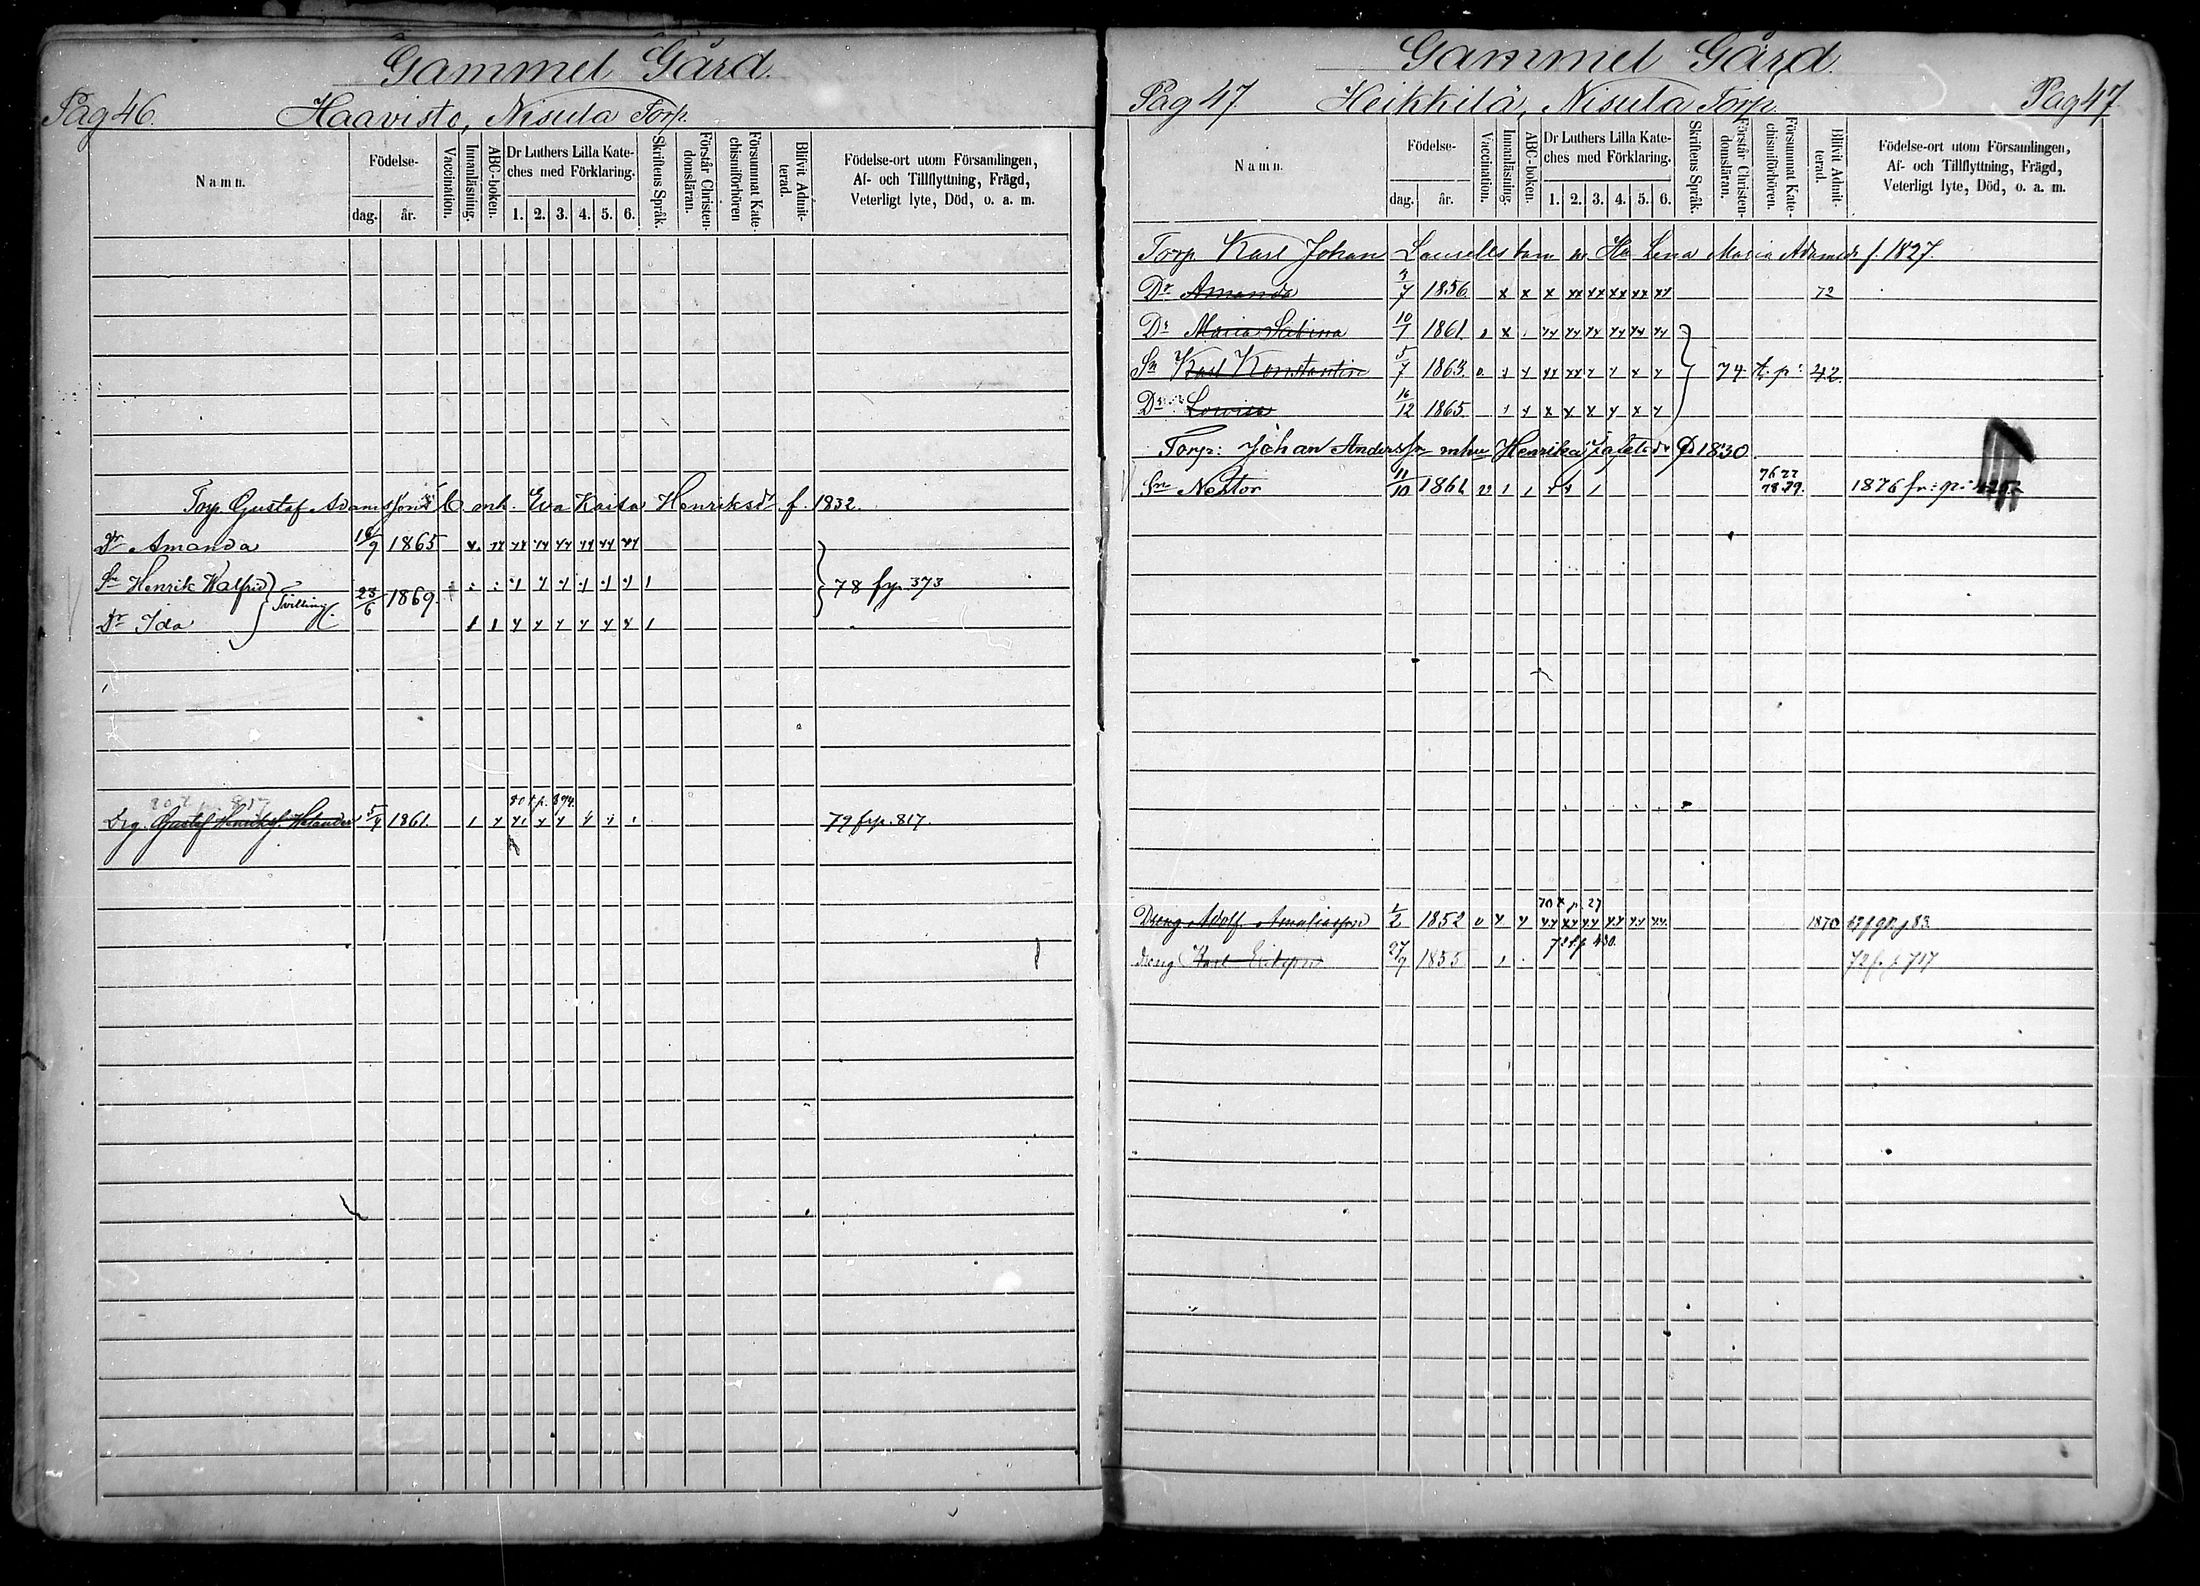 Gammel Gård.
Pag 46. Haavisto, Nisula Torp.
Namn.
Födelse-
dag. år.
Vaccination.
Innanläsning.
ABC-boken.
Dr Luthers Lilla Kateches med Förklaring.
1. 2. 3. 4. 5. 6.
Skriftens Språk.
Förstår Christendomsläran.
Försummat Katechismiförhören
Blifvit Admitterad.
Födelse-ort utom Församlingen,
Af- och Tillflyttning, Frägd,
Veterligt lyte, Död, o. a. m.
Torp. Gustaf Adamsson enk. Eva Kaisa Henriksdr f. 1832.
Dr Amanda 16/9 1865
Sn Henrik Walfrid 23/6 1869. Tvilling. 78 fr p. 373
Dr Ida
80 t p. 894.
Drg. Gustaf Henriksf. Helander 5/4 1861. 79 fr p. 817.
Gammel Gård.
Pag 47. Heikkilä, Nisula Torp. Pag 47.
Namn.
Födelse-
dag. år.
Vaccination.
Innanläsning.
ABC-boken.
Dr Luthers Lilla Kateches med Förklaring.
1. 2. 3. 4. 5. 6.
Skriftens Språk.
Förstår Christendomsläran.
Försummat Katechismiförhören.
Blifvit Admitterad.
Födelse-ort utom Församlingen,
Af- och Tillflyttning, Frägd,
Veterligt lyte, Död, o. a. m.
Torp. Karl Johan Hu Lena Maria Adamsdr f. 1827.
Dr Amanda 3/7 1856. 72
Dr Maria Sabina 10/1 1861.
Sn Karl Konstantin 5/7 1863. 74 t. p: 42.
Dr Lovisa 16/12 1865.
Torp: Johan Andersson m hu Henrika 1830
Sn Nestor 11/10 1861. 76 77 78. 79. 1876 fr: p:
70 t p 27
Dreng Adolf 1/2 1852 1870
72 t. p 430.
dreng Karl Eriksson 27/7 1855 72 f. p 717